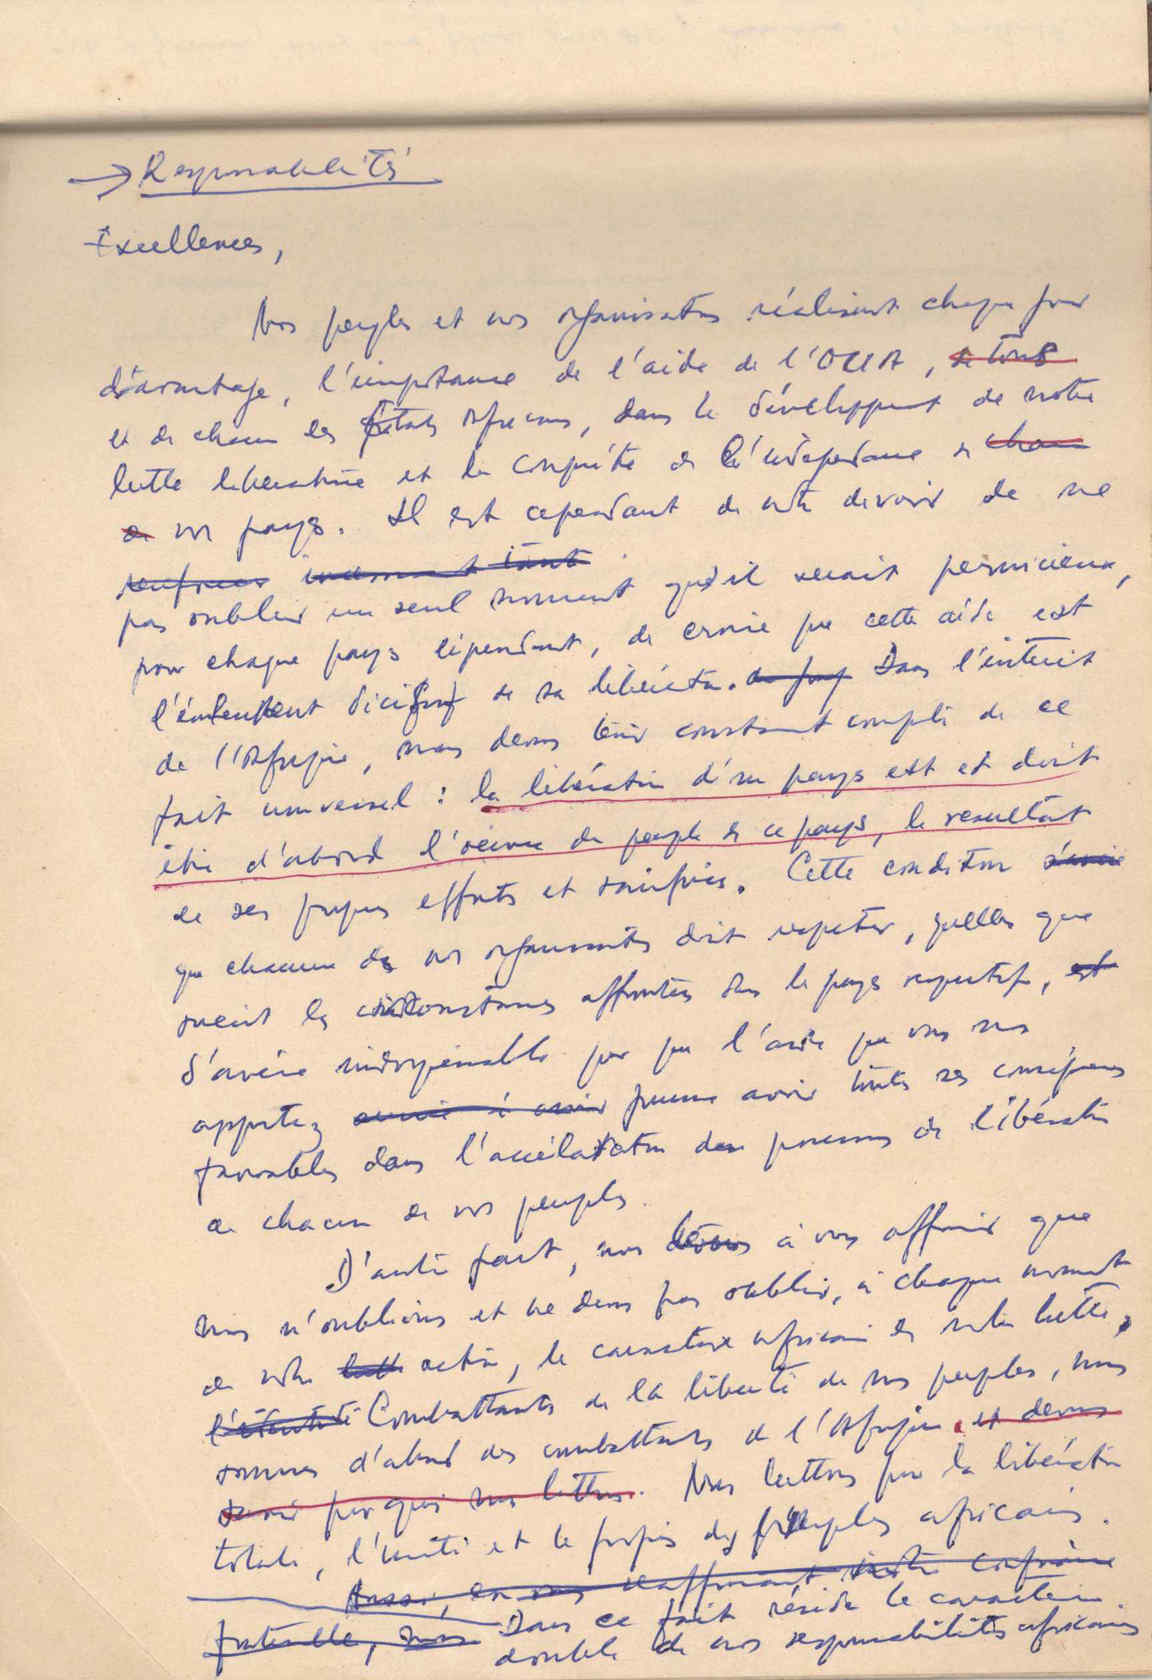 → Responsabilités
Excellences,
Nos peuples et nos organisations réalisent chaque jour
davantage, l'importance de l'aide de l'OUA, de tous
et de chacun des États Africains, dans le développement de notre
lutte libératrice et la conquête de l'indépendance de
de nos pays. Il est cependant de notre devoir de ne
renforcer tant
pas oublier un seul moment qu'il serait pernicieux,
pour chaque pays dépendant, de croire que cette aide est
l'élément décisif de sa libération. Dans l'intérêt
de l'Afrique, nous devons tenir constant compte de ce
fait universel : la libération d'un pays est et doit
être d'abord l'œuvre du peuple de ce pays, le résultat
de ses propres efforts et sacrifices. Cette condition s'avère
que chacune de nos organisations doit respecter, quelles que
soient les circonstances affrontées dans le pays respectif, est
s'avère indispensable pour que l'aide que vous nous
apportez puisse avoir toutes ses conséquences
favorables dans l'accélération du processus de libération
de chacun de nos peuples.
D'autre part, nous devons à vous affirmer que
nous n'oublions et ne devons pas oublier, à chaque moment
de notre lutte action, le caractère africain de notre lutte.
Combattants de la liberté de nos peuples, nous
sommes d'abord des combattants de l'Afrique. et devons
savoir pourquoi nous luttons. Nous luttons pour la libération
totale, l'unité et le progrès des peuples africains.
Aussi, en vous réaffirmant notre confiance
fraternelle, nous Dans ce fait réside le caractère
double de nos responsabilités africaines